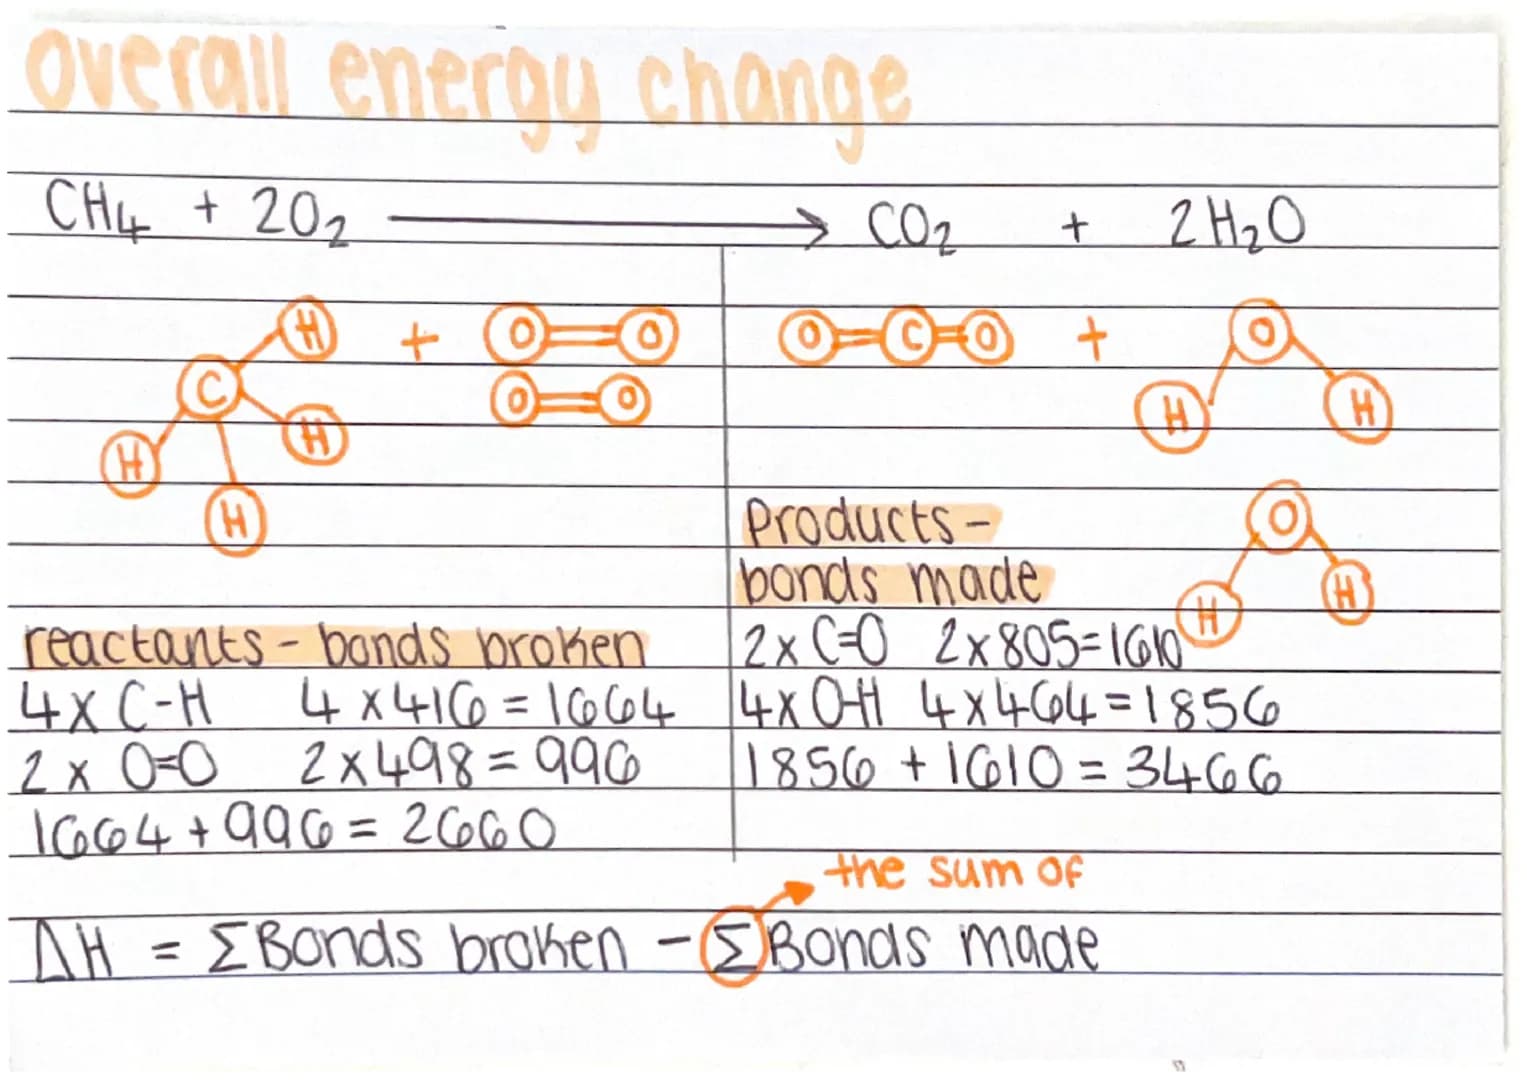 Overall energy change
CH₄ + 2O₂ ⟶ CO₂ + 2H₂O
H + O=O
C
O=O
H
H
H
O=C=O + O
H H
O
H H
reactants - bonds broken
4x C-H 4 x 416 = 1664
2 x O=O 2 x 498 = 996
1664 + 996 = 2660
Products -
bonds made
2x C=O 2x805=1610
4x O-H 4x464=1856
1856 + 1610 = 3466
the sum of
ΔH = ΣBonds broken - ΣBonds made